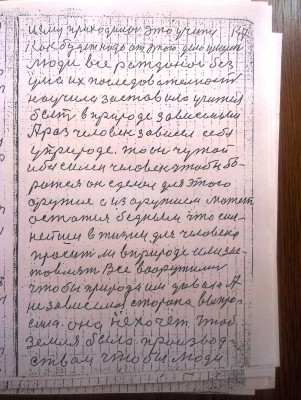 нему приходилось это учить 147
Как будет надо от этого
люди все рождоной без
ума их последовательность
научила заставило учится
быть в природе зависимым
А раз человек зависел себя
у природе. то он чужой
и бы силен человек чтобы бо-
ролся он сделал для этого
оружие а из оружием может
остатся бедным что силь-
нейшим в жизни для человека
просит ли в природе или зле-
Все вооружили
чтобы природа им довала А
независимая сторона выпро-
сила. она не хочет чтоб
земля было производ-
ством чтобы люди